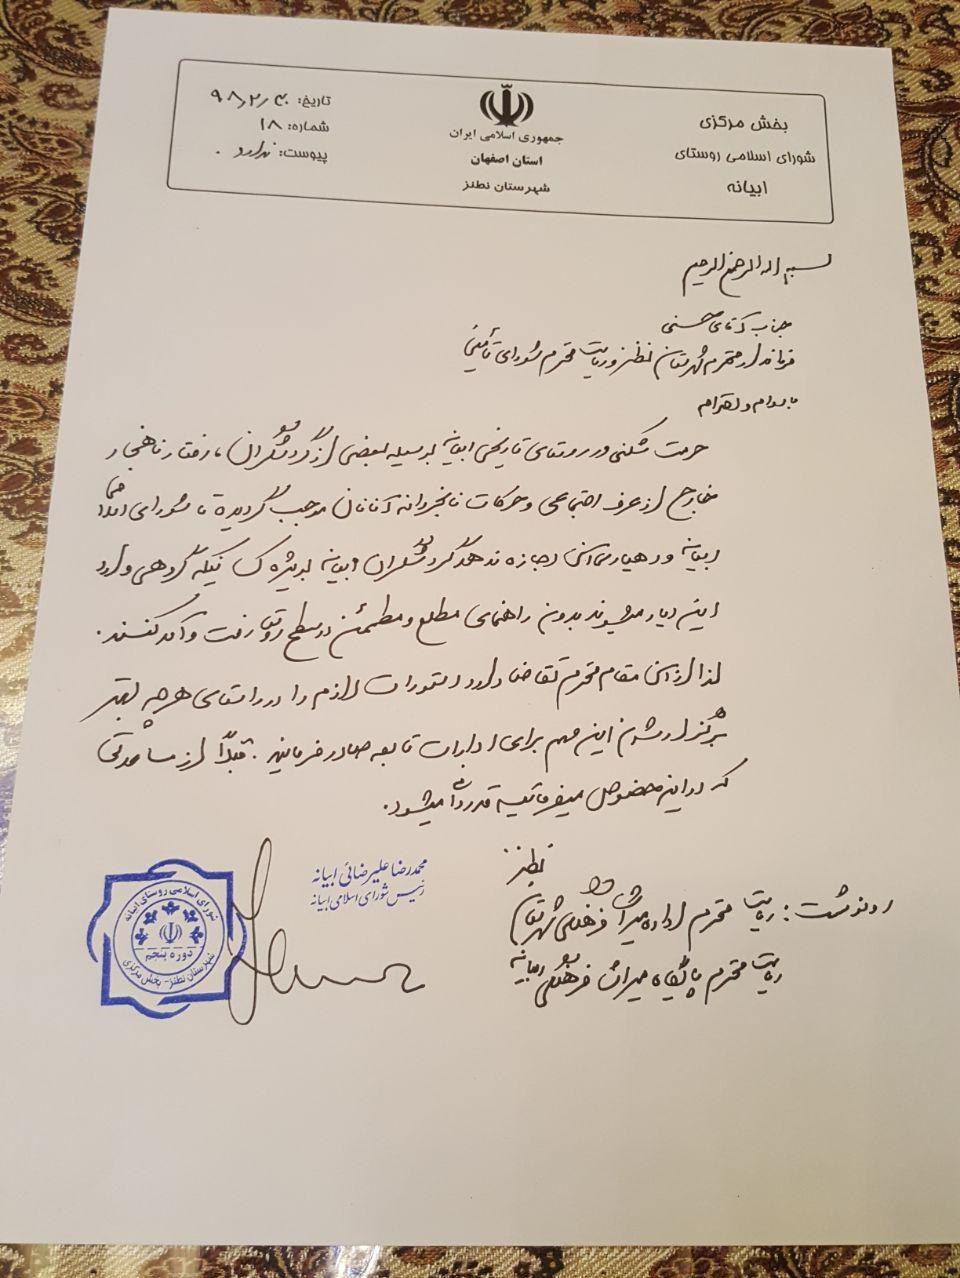 بخش مرکزی
شورای اسلامی روستای
ابیانه
جمهوری اسلامی ایران
استان اصفهان
شهرستان نطنز
تاریخ: ۹۸/۲/۳۰
شماره: ۱۸
پیوست: ندارد .
بسم الله الرحمن الرحیم
جناب آقای حسنی
فرماندار محترم شهرستان نطنز و ریاست محترم شورای تأمین
با سلام و احترام
حرمت شکنی در روستای تاریخی ابیانه بوسیله بعضی از گردشگران با رفتار ناهنجار
خارج از عرف اجتماعی و حرکات نابخردانه آنانان موجب گردیده تا شورای اسلامی
ابیانه و دهیاری اش اجازه ندهد گردشگران ابیانه بویژه کسانیکه گروهی وارد
این دیار میشوند بدون راهنمای مطلع و مطمئن در سطح روستا رفت و آمد کنند.
لذا از آن مقام محترم تقاضا دارد دستورات لازم را در راستای هرچه بهتر
برگزار شدن این مهم برای ادارات تابعه صادر فرمایند. قبلاً از مساعدتی
که در این خصوص میفرمائید قدردانی میشود.
محمدرضا علیرضائی ابیانه
رئیس شورای اسلامی ابیانه
شورای اسلامی روستای ابیانه
دوره پنجم
شهرستان نطنز - بخش مرکزی
رونوشت: ریاست محترم اداره میراث فرهنگی شهرستان نطنز
ریاست محترم پایگاه میراث فرهنگی ابیانه